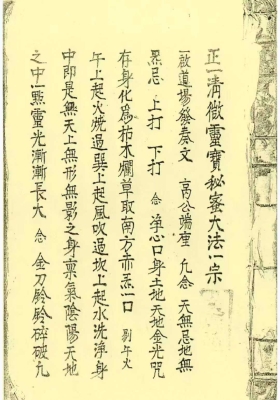 正一清微靈寶秘密大法一宗
一啟道場發奏文 高公端座 凢念 天無忌地無
忌 上打 下打 念 净心口身土地天地金光咒
存身化為枯木爛草取南方赤炁一口 剔午火
午上起火燒過巽上起風吹過坎上起水洗净身
中即是無天上無形無影之身稟氣陰陽天地
之中一㸃靈光漸漸長大 念 金刀鈴鈴碎破九